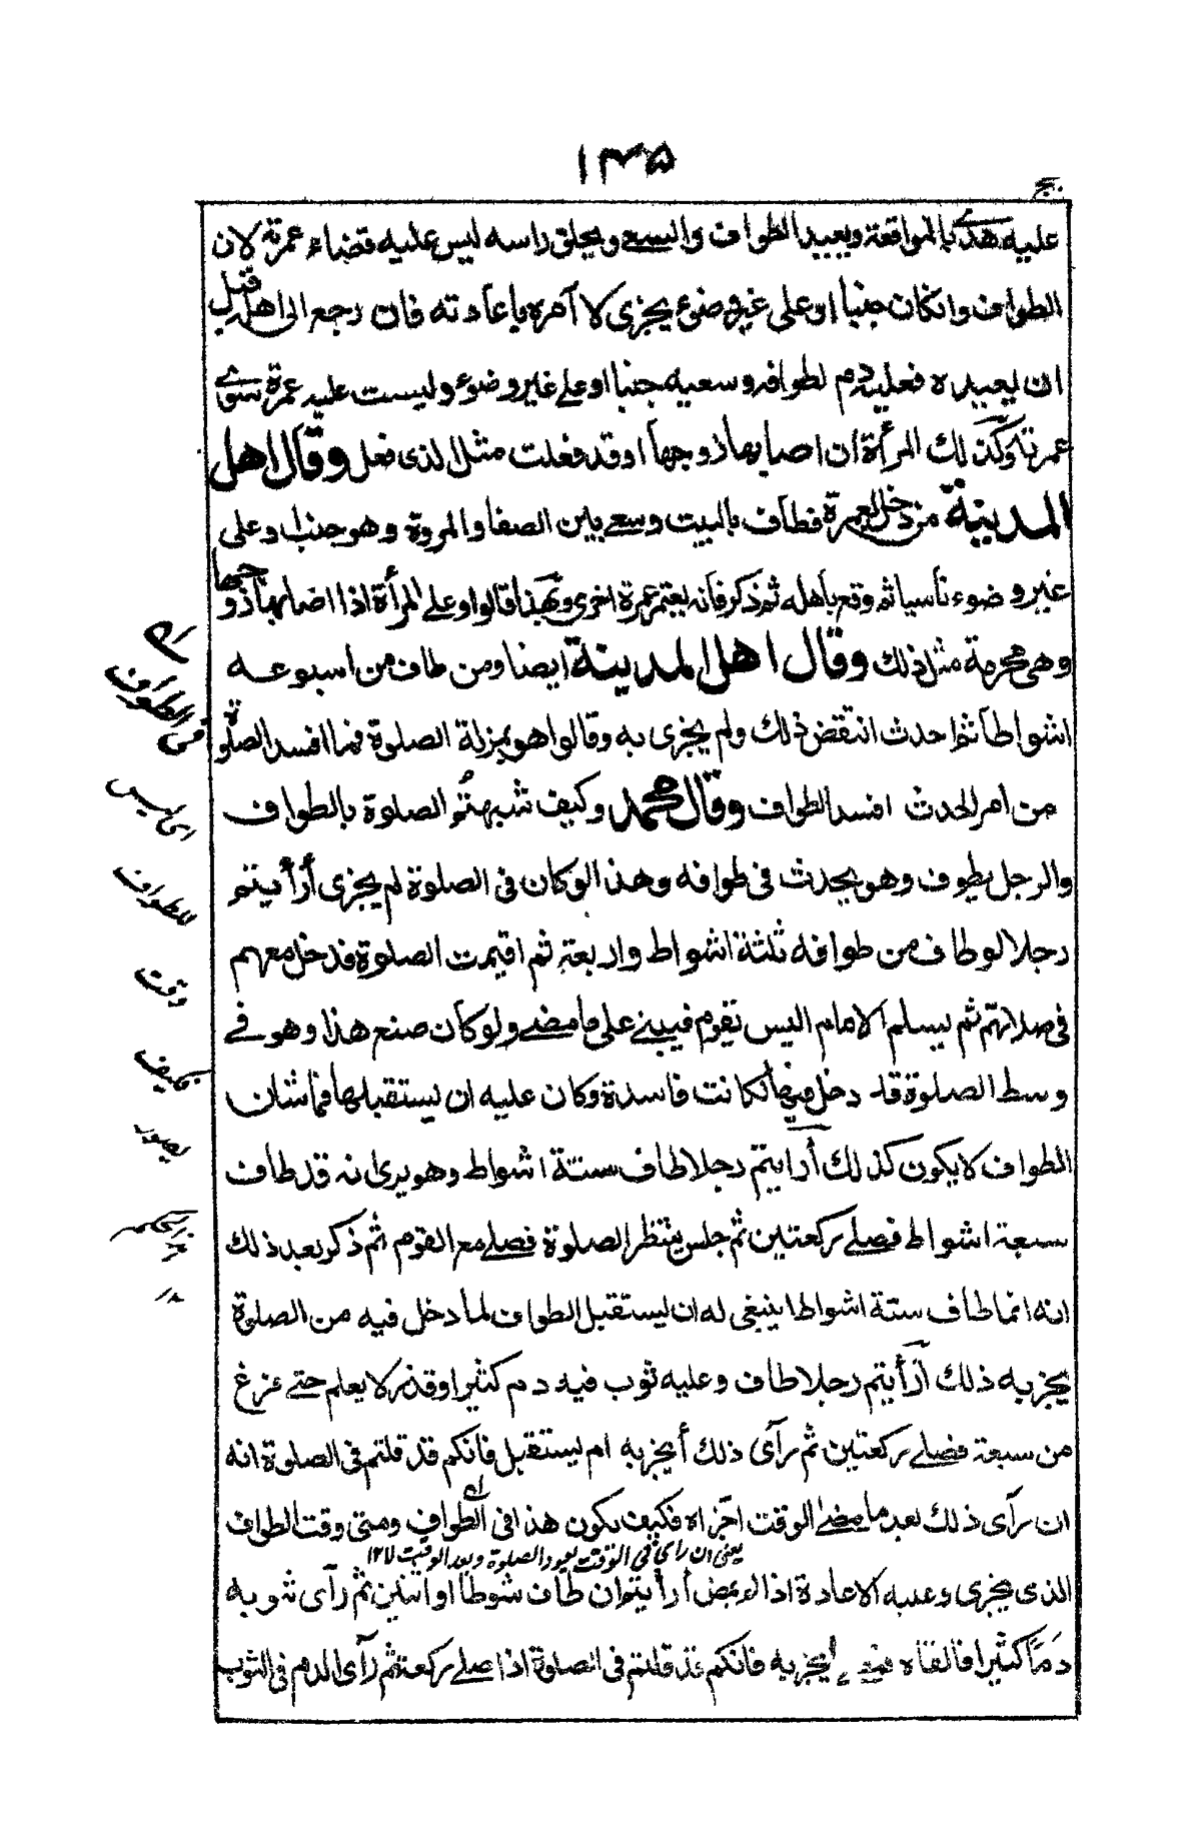 ١٣٥
حج
عليه هدى بالمواقعة ويعيد الطواف والسعى ويحلق راسه ليس عليه قضاء عمرته لان
الطواف وانكان جنبا او على غير وضوء يجزى لا آمره باعادته فان رجع الى اهله قبل
ان يعيده فعليه دم لطوافه وسعيه جنبا او على غير وضوء وليست عليه عمرة سوى
عمرته وكذلك المرأة ان اصابها زوجها وقد فعلت مثل الذى فعل وقال اهل
المدينة من دخل بعمرة فطاف بالبيت وسعى بين الصفا والمروة وهو جنب او على
غير وضوء ناسيا ثم وقع باهله ثم ذكر فانه يعتمر عمرة اخرى ويهدى قالوا وعلى المرأة اذا اصابها زوجها
وهى محرمة مثل ذلك وقال اهل المدينة ايضا ومن طاف من اسبوعه
اشواطا ثم احدث انتقض ذلك ولم يجزى به وقالوا هو بمنزلة الصلوة فما افسد الصلوة
من امر الحدث افسد الطواف وقال محمد وكيف شبهتم الصلوة بالطواف
والرجل يطوف وهو يحدث فى طوافه وهذا لو كان فى الصلوة لم يجزى أرأيتم
رجلا لو طاف من طوافه ثلثة اشواط واربعة ثم اقيمت الصلوة فدخل معهم
فى صلاتهم ثم يسلم الامام اليس يقوم فيبنى على ما مضى ولو كان صنع هذا وهو فى
وسط الصلوة قد دخل فيها لكانت فاسدة وكان عليه ان يستقبلها فما شان
الطواف لا يكون كذلك أرايتم رجلا طاف ستة اشواط وهو يرى انه قد طاف
سبعة اشواط فصلى ركعتين ثم جلس ينتظر الصلوة فصلى مع القوم ثم ذكر بعد ذلك
انه انما طاف ستة اشواط اينبغى له ان يستقبل الطواف لما دخل فيه من الصلوة
يجزيه ذلك أرأيتم رجلا طاف وعليه ثوب فيه دم كثير او قذر لا يعلم حتى فرغ
من سبعة فصلى ركعتين ثم رأى ذلك أيجزيه ام يستقبل فانكم قد قلتم فى الصلوة انه
ان رآى ذلك بعد ما مضى الوقت اجزاه فكيف يكون هذا فى الطواف ومتى وقت الطواف
يعنى ان رأى فى الوقت يعيد الصلوة وبعد الوقت لا ١٢
الذى يجزى وعليه الاعادة اذا لم يمض أرأيتم ان طاف شوطا او اثنين ثم رآى ثوبه
دمًا كثيرا فالقاه أيجزيه فانكم قد قلتم فى الصلوة اذا صلى ركعة ثم رآى الدم فى الثوب
فى الطواف
اى ليس
للطواف
وقت
فكيف
يصور